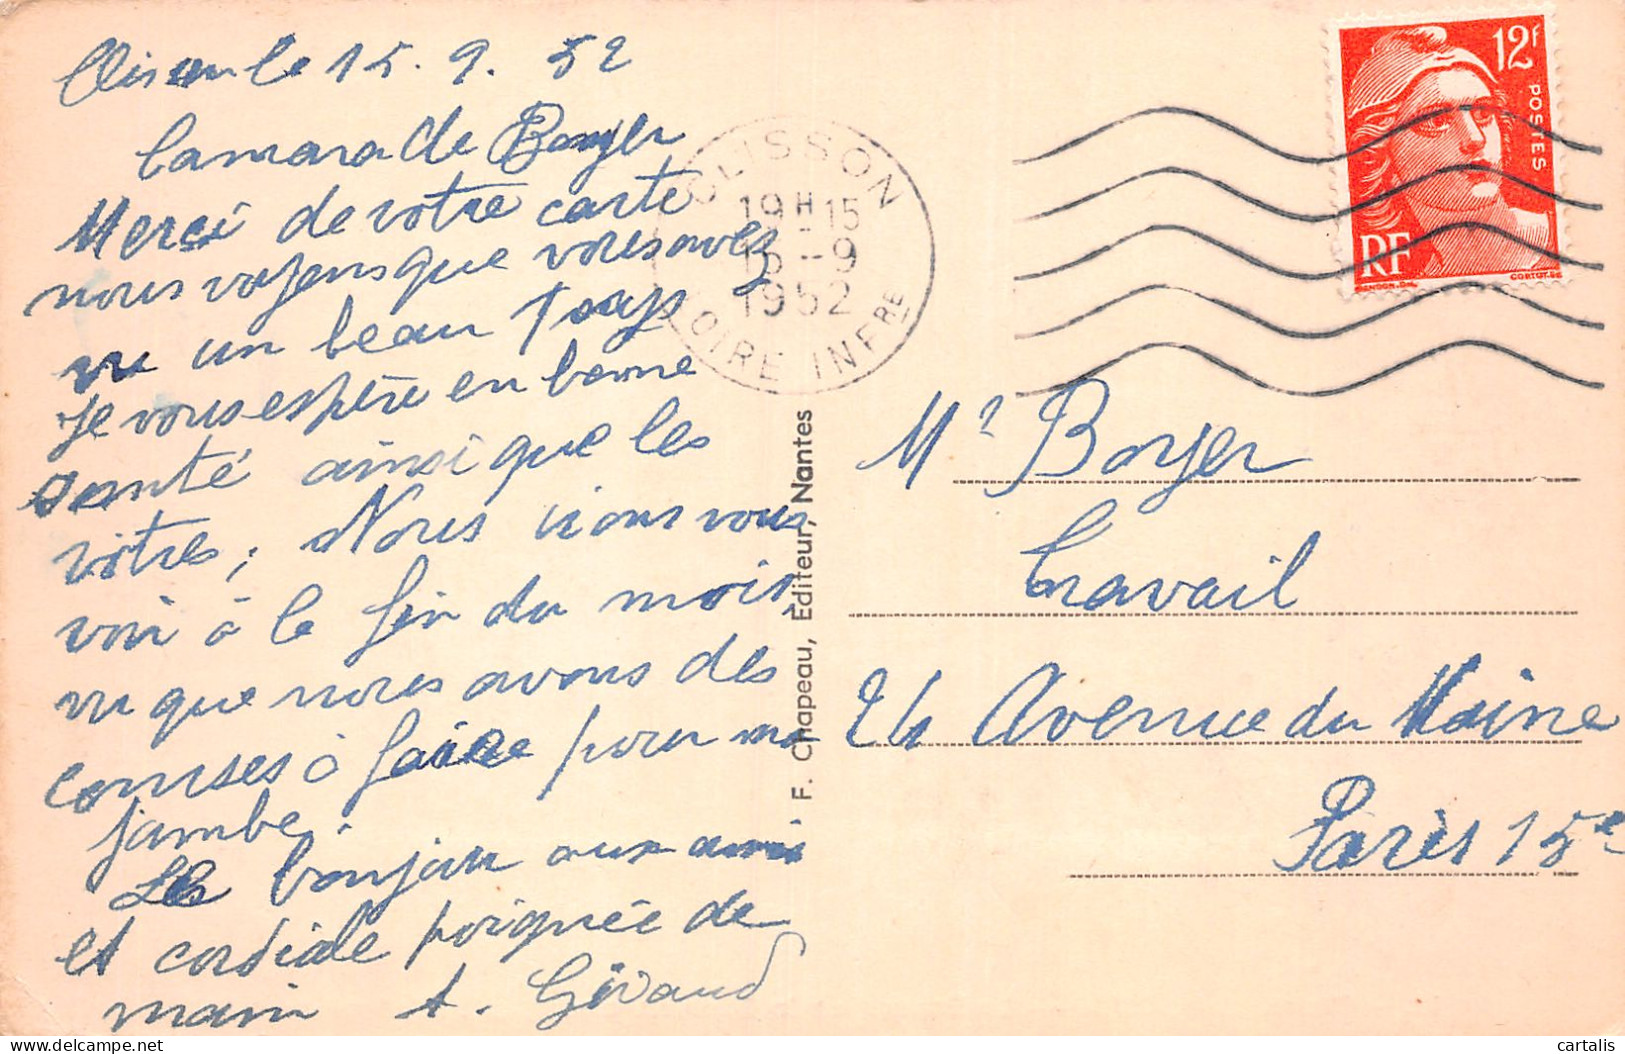 Clisson le 15.9.52
Camarade Boyer
Merci de votre carte
nous voyons que vous avez
vu un beau Pays
Je vous espère en bonne
santé ainsi que les
vôtres, Nous irons vous
voir à la fin du mois
vu que nous avons des
courses à faire pour ma
jambe
Le bonjour aux amis
et cordiale poignée de
main A. Géraud
F. Chapeau, Éditeur, Nantes
CLISSON
19H15
15-9
1952
LOIRE INFRE
12F
POSTES
RF
GANDON. DEL.
CORTOT. SC
Mr Boyer
Travail
24 Avenue du Maine
Paris 15e
delcampe.net
cartalis